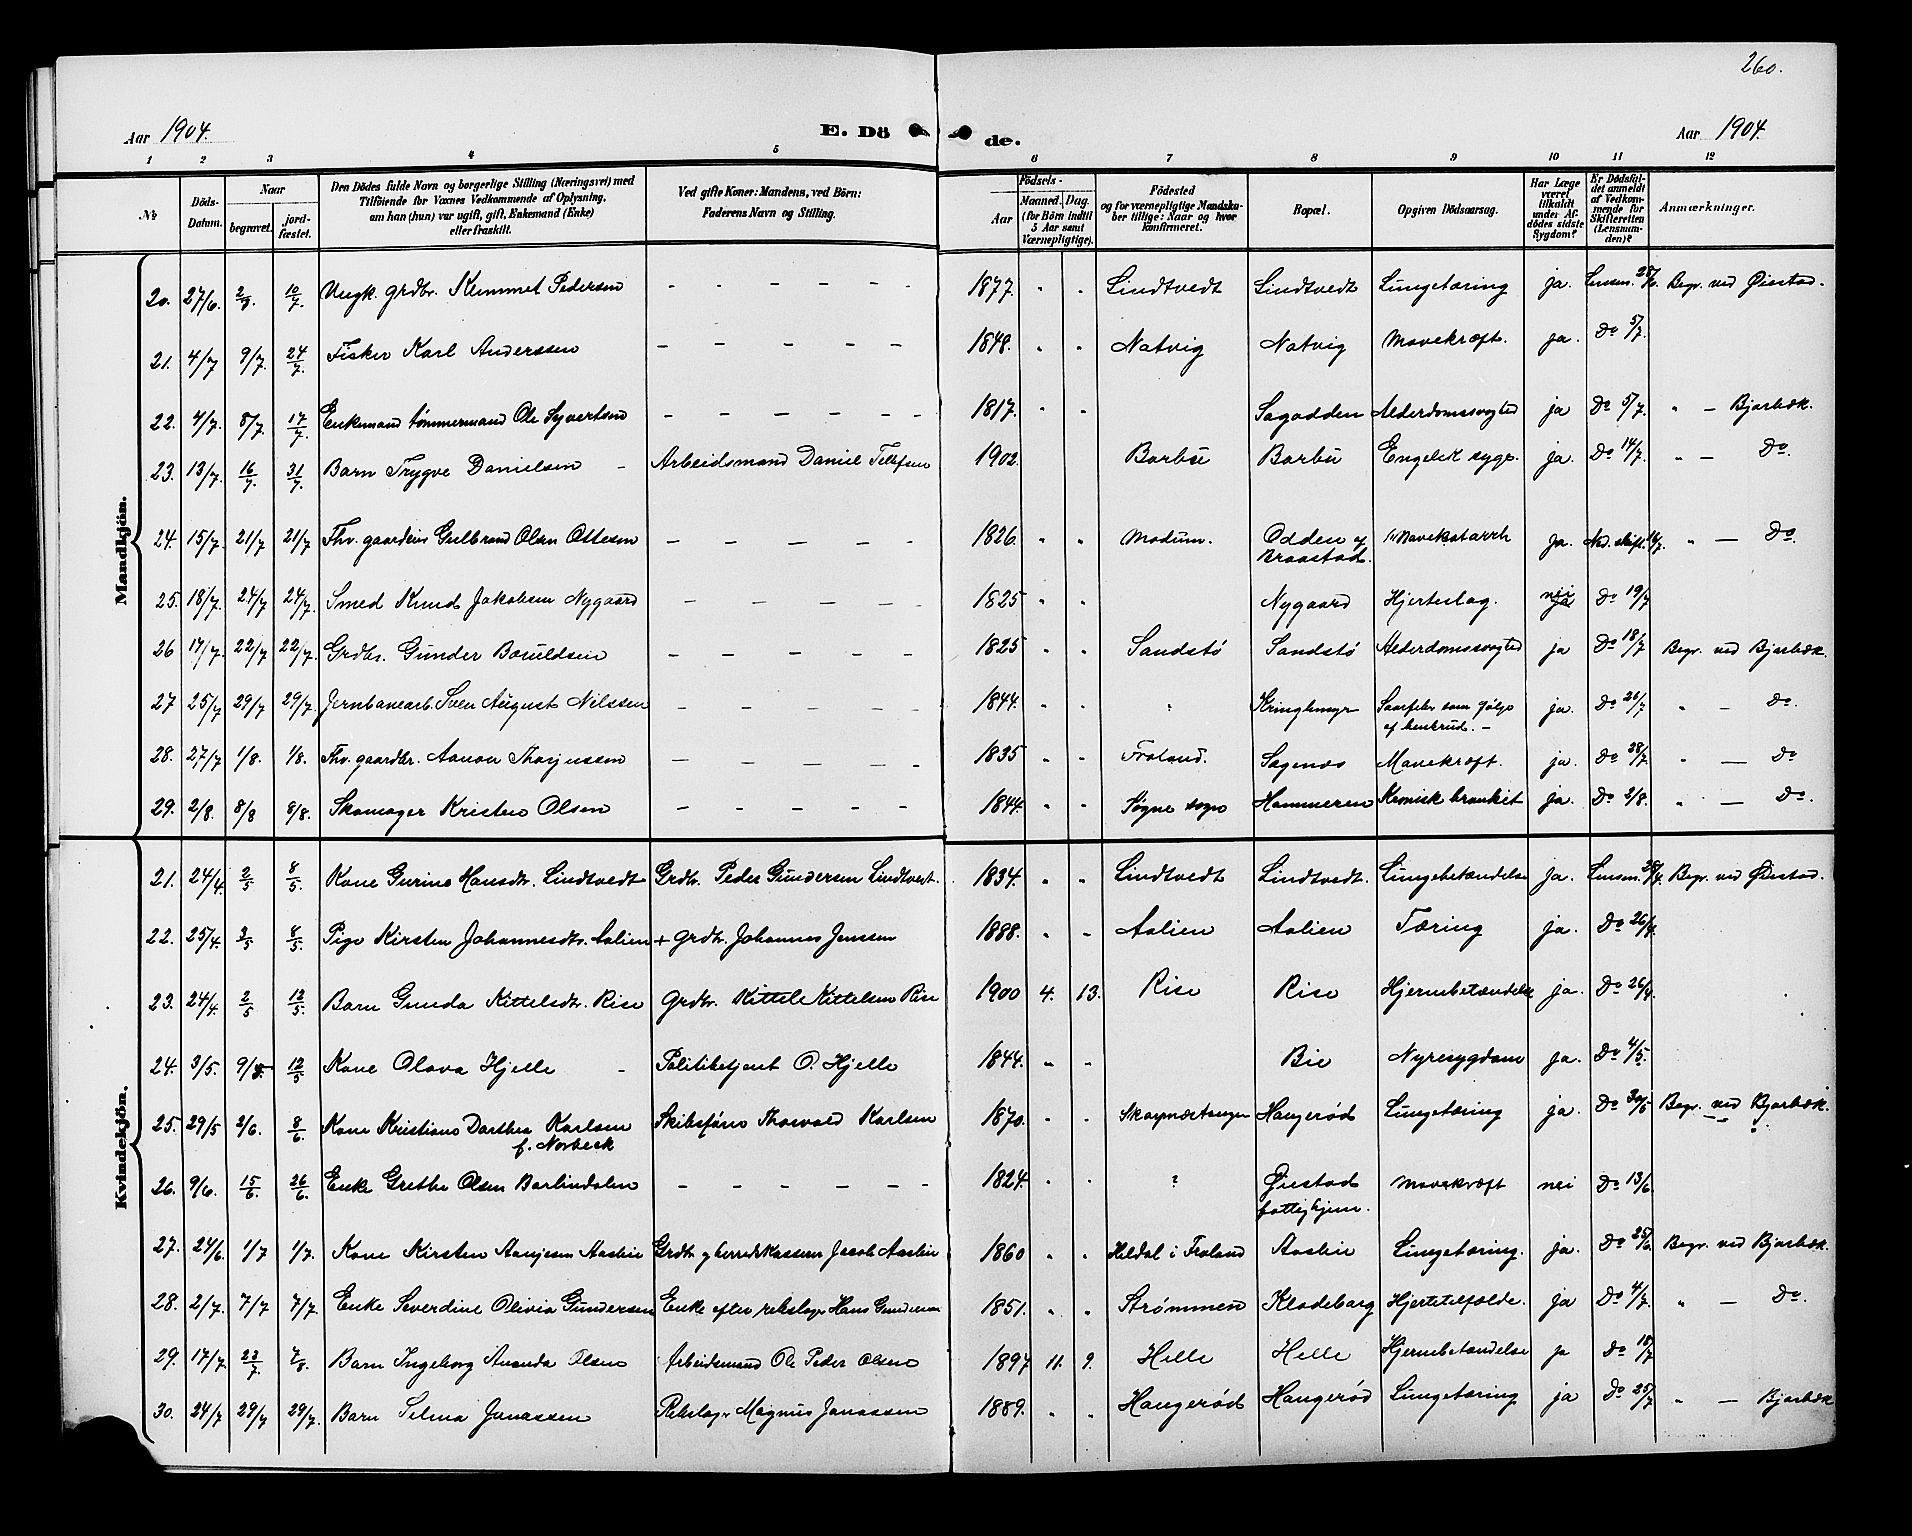 260.
Aar 1904. E. Dö de. Aar 1904.
1 2 3 4 5 6 7 8 9 10 11 12
№ Døds-Datum. Naar begravet. jordfæstet. Den Dödes fulde Navn og borgerlige Stilling (Næringsvei) med Tilföiende for Voxnes Vedkommende af Oplysning, om han (hun) var ugift, gift, Enkemand (Enke) eller fraskilt. Ved gifte Koner: Mandens, ved Börn: Faderens Navn og Stilling. Födsels- Aar Maaned. Dag. (for Börn indtil 5 Aar samt Værnepligtige). Födested og for værnepligtige Mandskaber tillige: Naar og hvor konfirmeret. Bopæl. Opgiven Dödsaarsag. Har Læge været tilkaldt under Afdödes sidste Sygdom? Er Dödsfaldet anmeldt af Vedkommende for Skifteretten (Lensmanden)? Anmærkninger.
Mandkjön.
20. 27/6 2/7 10/7 Ungk. grdbr. Kummet Pedersen – – – – – – 1877. " " Lindtvedt Lindtvedt Lungetæring ja. Lensm. 28/6 Begr. ved Øiestad.
21. 4/7 9/7 24/7 Fisker Karl Anderssen – – – – – – 1848. " " Natvig Natvig Mavekræft. ja. Do 5/7.
22. 4/7. 8/7. 17/7 Enkemand tømmermand Ole Syvertsen – – – – – – 1817. " " Sagodden Alderdomssvaghed ja Do 5/7. " – Bjorbæk.
23. 13/7 16/7 31/7. Barn Trygve Danielsen – Arbeidsmand Daniel Tellefsen 1902. Barbu Barbu Engelsk syge. ja. Do 14/7. " – Do.
24. 15/7. 21/7 21/7 Fhv. gaardeier Gulbrand Olsen Ottesen – – – – – 1826. " " Modum. Odden af Braastad. Mavekatarrh ja. Ned. skift. 16/7. " – Do
25. 18/7. 24/7 24/7. Smed Knud Jakobsen Nygaard – – – – – 1825 " " Nygaard Hjerteslag. nei ja Do 19/7
26 17/7. 22/7 22/7. Grdbr. Gunder Baruldsen – – – – – 1825 " " Sandstø Sandstø Alderdomssvaghed ja Do 18/7 Begr. ved Bjorbæk.
27 25/7 29/7 29/7. Jernbanearb. Sven August Nilssen – – – – – 1844. " " " Kringlemyr Saarfeber som følge af benbrud. – ja. Do 26/7 " – Do.
28. 27/7 1/8. 1/8. Fhv. gaardbr. Aanon Thorjussen – – – – – 1835 " " Froland. Sagenes Mavekræft. ja. Do 28/7 " – Do
29. 2/8. 8/8 8/8. Skomager Kristen Olsen – – – – – 1844. " " Søgne sogn Hammeren Kronisk bronkit ja. Do 2/8. " – Do.
Kvindekjön.
21. 24/4. 2/5 8/5. Kone Gurine Hansdtr. Lindtvedt Grdbr. Peder Gundersen Lindtvedt. 1834. " " Lindtvedt Lindtvedt. Lungebetændelse ja. Lensm. 28/4. Begr. ved Øiestad.
22. 25/4. 3/5 8/5. Pige Kirsten Johannesdtr. Aalien + grdbr. Johannes Jenssen 1888. " " Aalien Aalien Tæring ja. Do 26/4.
23. 24/4. 2/5 12/5. Barn Gunda Kittelsdtr. Rise grdbr. Kittel Kittelsen Rise 1900 4. 13. Rise Rise Hjernebetændelse ja. Do 26/4.
24. 3/5. 9/5. 12/5 Kone Olava Hjelle – Politibetjent O. Hjelle 1844. " " Bie Nyresygdom ja. Do 4/5.
25. 29/5 2/6. 8/6. Kone Kristiane Dorthea Karlsen f. Norbeck Skibsfører Thorvald Karlsen 1870. " " Skarpnæstangen Haugerød Lungetæring ja. Do 30/5 Begr. ved Bjorbæk.
26. 9/6. 15/6. 26/6 Enke Grethe Olsen Barlindalen – – – – – – 1824. " " ? Øiestad fattighjem. Mavekræft nei Do 13/6
27. 24/6. 1/7 1/7. Kone Kirsten Aanjesen Aaslien Grdbr. og herredskasserer Jacob Aaslien 1860 " " Heldal i Froland Aaslien Lungetæring. ja. Do 25/6. Begr. ved Bjorbæk.
28. 2/7. 7/7 7/7. Enke Severdine Olivia Gundersen Enke efter rebslager Hans Gundersen 1851. " " Strømmen Klodeborg Hjertetilfælde. ja Do 4/7. " – Do.
29. 17/7. 23/7 7/8. Barn Ingeborg Amanda Olsen Arbeidsmand Ole Peder Olsen 1897 11. 9. Helle Helle Hjernebetændelse ja Do 18/7
30. 24/7 29/7 29/7. Barn Selma Jonassen Rebslager Magnus Jonassen 1889. " " Haugerød Haugerød Lungetæring ja Do 25/7 " – Bjorbæk